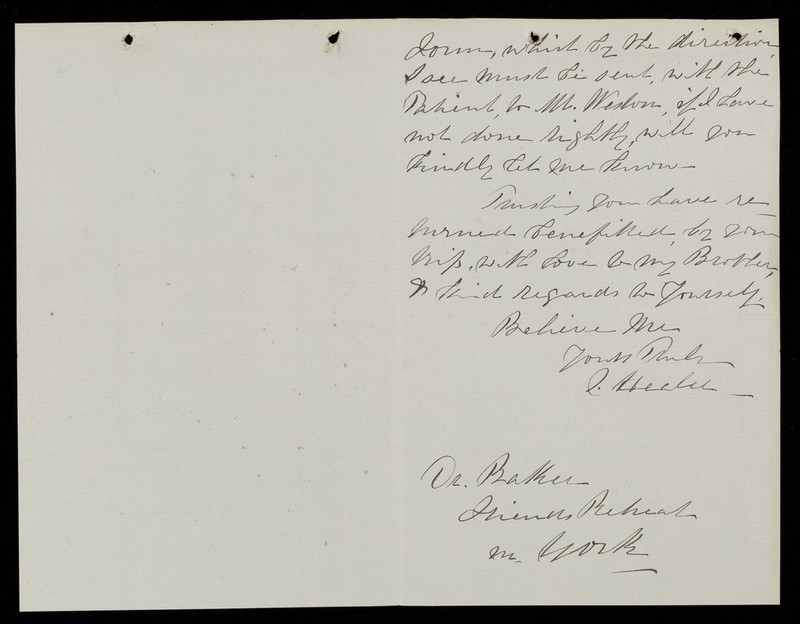 Form, which by the direction
I see must be sent, with the
Patient, to Mr. Weston, if I have
not done rightly, will you
kindly let me know –
Trusting you have re-
turned benefitted, by your
trip, with love to my Brother,
& kind regards to Yourself,
Believe Me
Yours Truly
Dr. Baker
Friends Retreat
nr. York